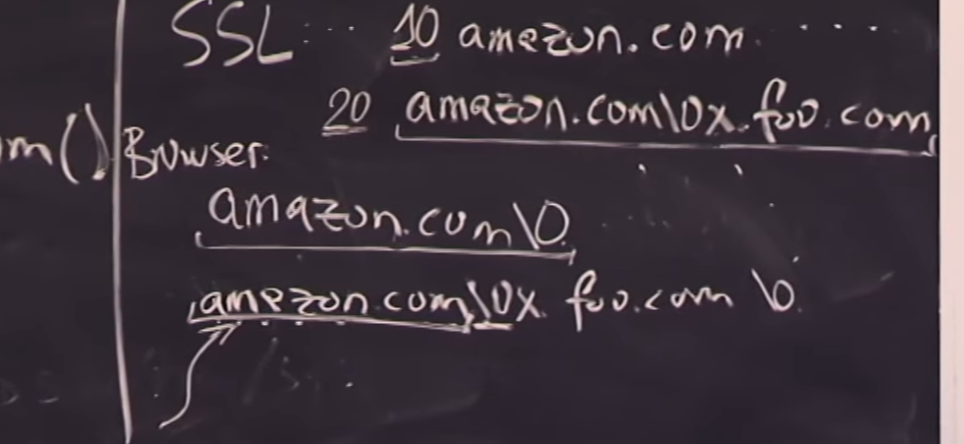 SSL ... 10 amazon.com ....
20 amazon.com\0x.foo.com
m() Browser:
amazon.com\0
amazon.com\0x.foo.com\0